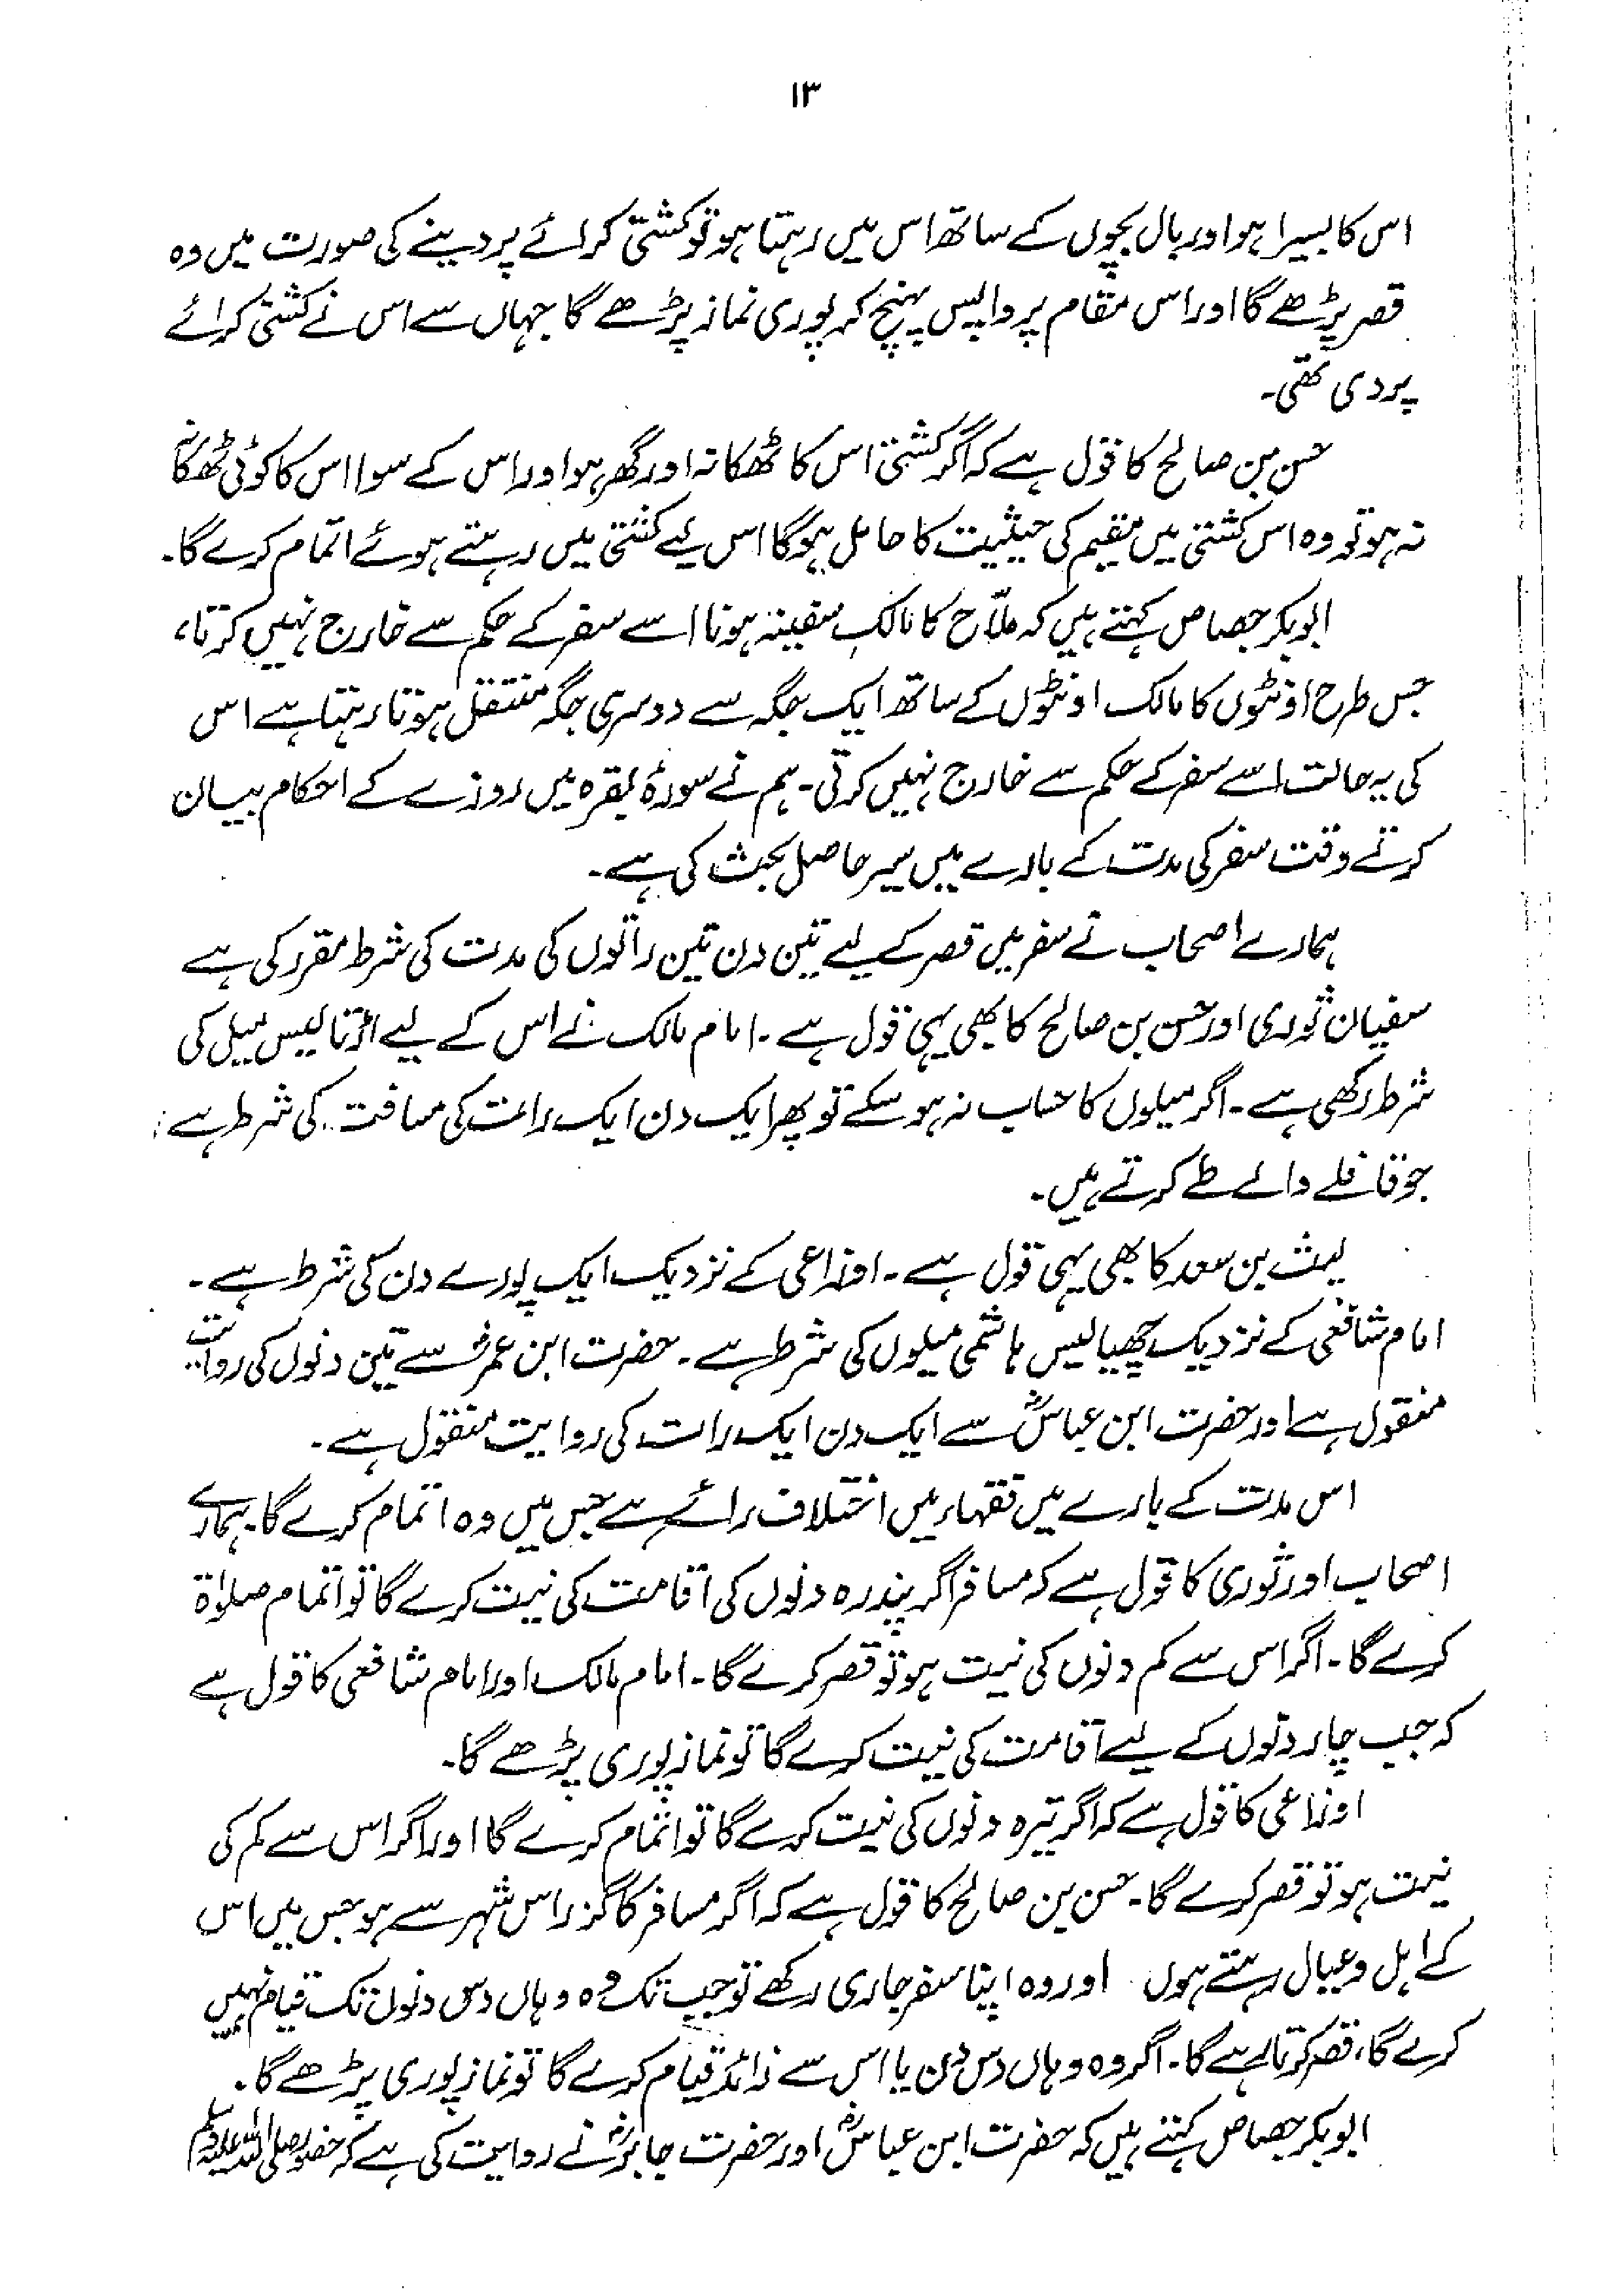 ۱۳
اس کا بسیرا ہو اور بال بچوں کے ساتھ اس میں رہتا ہو تو کشتی کرائے پر دینے کی صورت میں وہ
قصر پڑھے گا اور اس مقام پر واپس پہنچ کر پوری نماز پڑھے گا جہاں سے اس نے کشتی کرائے
پر دی تھی۔
حسن بن صالح کا قول ہے کہ اگر کشتی اس کا ٹھکانہ اور گھر ہو اور اس کے سوا اس کا کوئی ٹھکانہ
نہ ہو تو وہ اس کشتی میں مقیم کی حیثیت کا حامل ہوگا اس لیے کشتی میں رہتے ہوئے اتمام کرے گا۔
ابوبکر جصاص کہتے ہیں کہ ملّاح کا مالکِ سفینہ ہونا اسے سفر کے حکم سے خارج نہیں کرتا،
جس طرح اونٹوں کا مالک اونٹوں کے ساتھ ایک جگہ سے دوسری جگہ منتقل ہوتا رہتا ہے اس
کی یہ حالت اسے سفر کے حکم سے خارج نہیں کرتی۔ ہم نے سورۂ بقرہ میں روزے کے احکام بیان
کرتے وقت سفر کی مدت کے بارے میں سیر حاصل بحث کی ہے۔
ہمارے اصحاب نے سفر میں قصر کے لیے تین دن تین راتوں کی مدت کی شرط مقرر کی ہے
سفیان ثوری اور حسن بن صالح کا بھی یہی قول ہے۔ امام مالک نے اس کے لیے اڑتالیس میل کی
شرط رکھی ہے۔ اگر میلوں کا حساب نہ ہو سکے تو پھر ایک دن ایک رات کی مسافت کی شرط ہے
جو قافلے والے طے کرتے ہیں۔
لیث بن سعد کا بھی یہی قول ہے۔ اوزاعی کے نزدیک ایک پورے دن کی شرط ہے۔
امام شافعی کے نزدیک چھیالیس ہاشمی میلوں کی شرط ہے۔ حضرت ابن عمرؓ سے تین دنوں کی روایت
منقول ہے اور حضرت ابن عباسؓ سے ایک دن ایک رات کی روایت منقول ہے۔
اس مدت کے بارے میں فقہاء میں اختلاف رائے ہے جس میں وہ اتمام کرے گا۔ ہمارے
اصحاب اور ثوری کا قول ہے کہ مسافر اگر پندرہ دنوں کی اقامت کی نیت کرے گا تو اتمام صلوٰۃ
کرے گا۔ اگر اس سے کم دنوں کی نیت ہو تو قصر کرے گا۔ امام مالک اور امام شافعی کا قول ہے
کہ جب چار دنوں کے لیے اقامت کی نیت کرے گا تو نماز پوری پڑھے گا۔
اوزاعی کا قول ہے کہ اگر تیرہ دنوں کی نیت کرے گا تو اتمام کرے گا اور اگر اس سے کم کی
نیت ہو تو قصر کرے گا۔ حسن بن صالح کا قول ہے کہ اگر مسافر کا گزر اس شہر سے ہو جس میں اس
کے اہل و عیال رہتے ہوں اور وہ اپنا سفر جاری رکھے تو جب تک وہ وہاں دس دنوں تک قیام نہیں
کرے گا، قصر کرتا رہے گا۔ اگر وہ وہاں دس دن یا اس سے زائد قیام کرے گا تو نماز پوری پڑھے گا۔
ابوبکر جصاص کہتے ہیں کہ حضرت ابن عباسؓ اور حضرت جابرؓ نے روایت کی ہے کہ حضور صلی اللہ علیہ وسلم